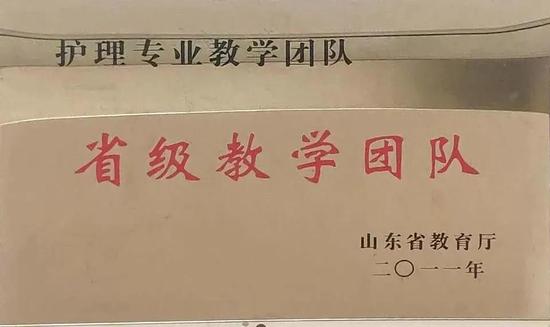 护理专业教学团队
省级教学团队
山东省教育厅
二〇一一年